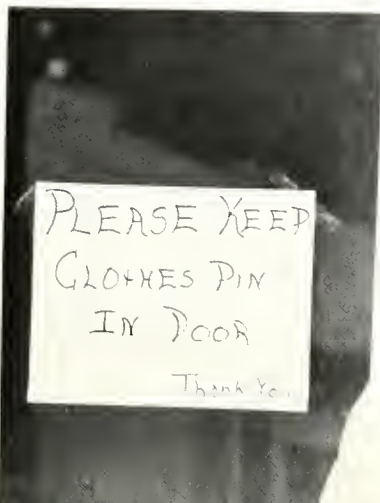 PLEASE KEEP
CLOTHES PIN
IN DOOR
Thank You